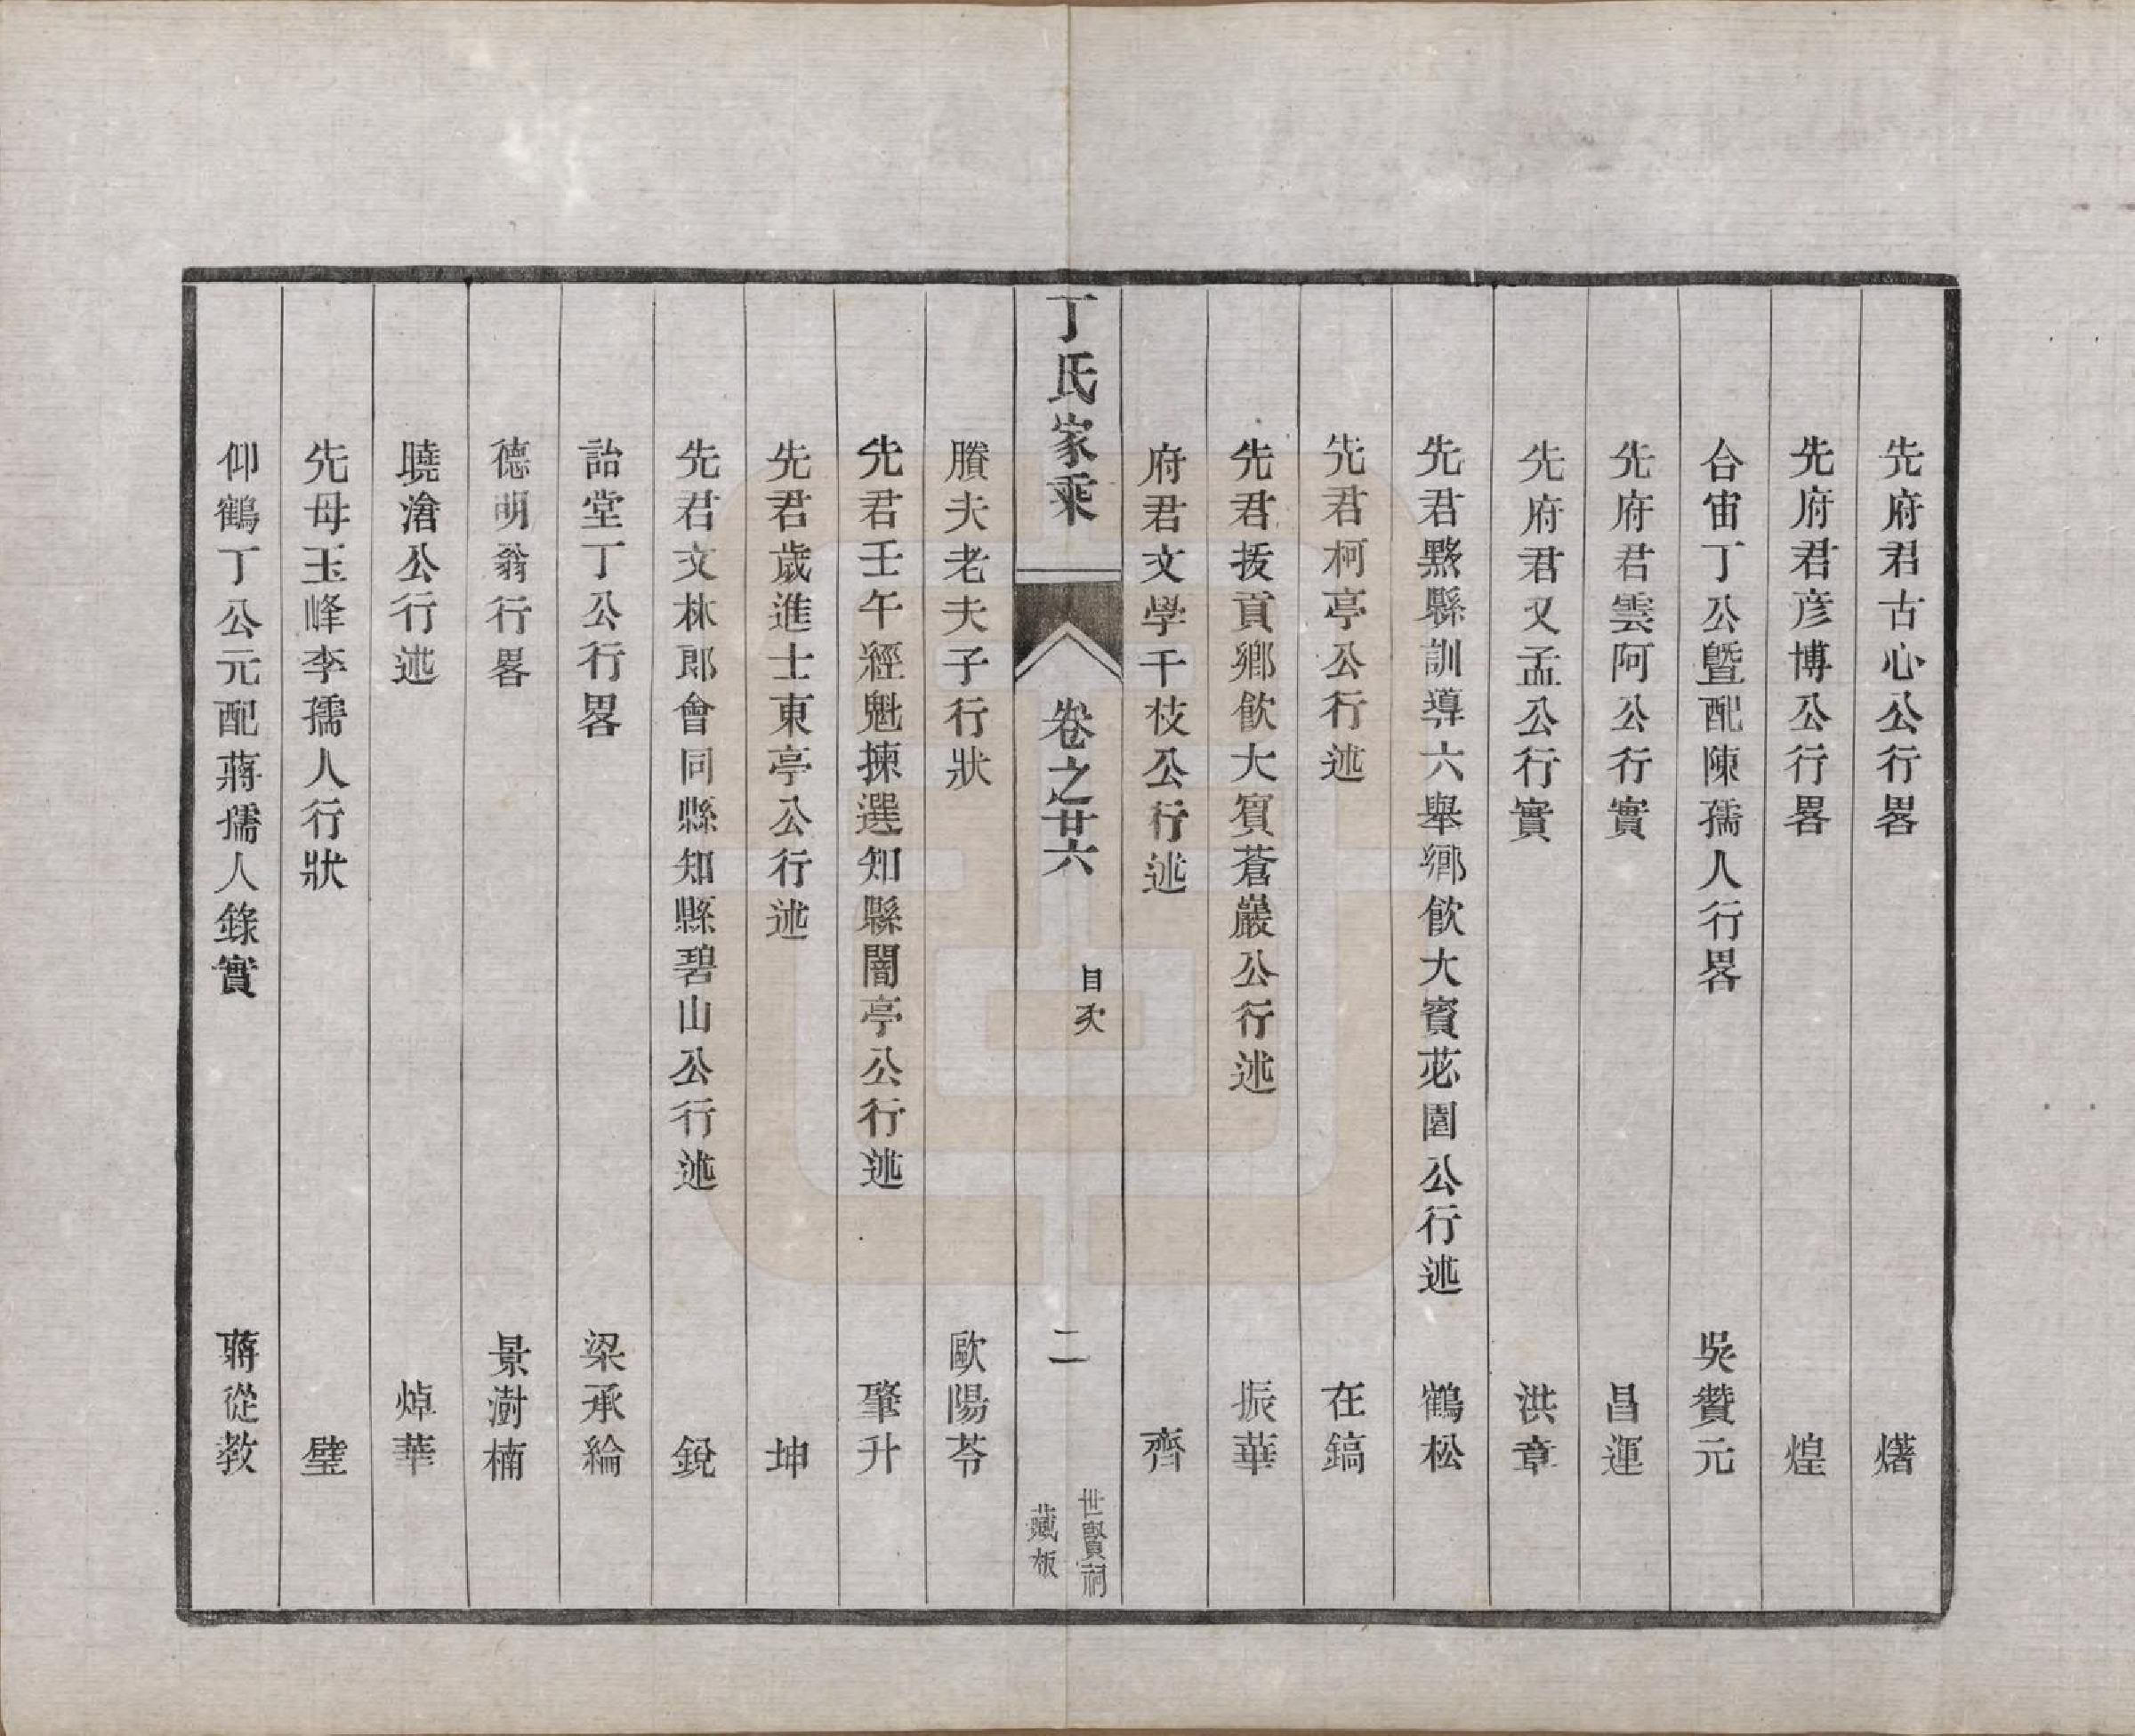 先府君古心公行畧 㸅
先府君彦博公行畧 煌
合宙丁公曁配陳孺人行畧 吳贊元
先府君雲阿公行實 昌運
先府君又孟公行實 洪章
先君黟縣訓導六舉鄉飲大賓苾園公行述 鶴松
先君柯亭公行述 在鎬
先君拔貢鄉飲大賓蒼巖公行述 振華
府君文學千枝公行述 齊
丁氏家乘 卷之廿六 目次 二 世賢祠藏板
賸夫老夫子行狀 歐陽苓
先君壬午經魁揀選知縣闇亭公行述 肇升
先君歲進士東亭公行述 坤
先君文林郎會同縣知縣碧山公行述 銳
詒堂丁公行畧 梁承綸
德明翁行畧 景澍楠
曉滄公行述 焯華
先母玉峰李孺人行狀 璧
仰鶴丁公元配蔣孺人錄實 蔣從教